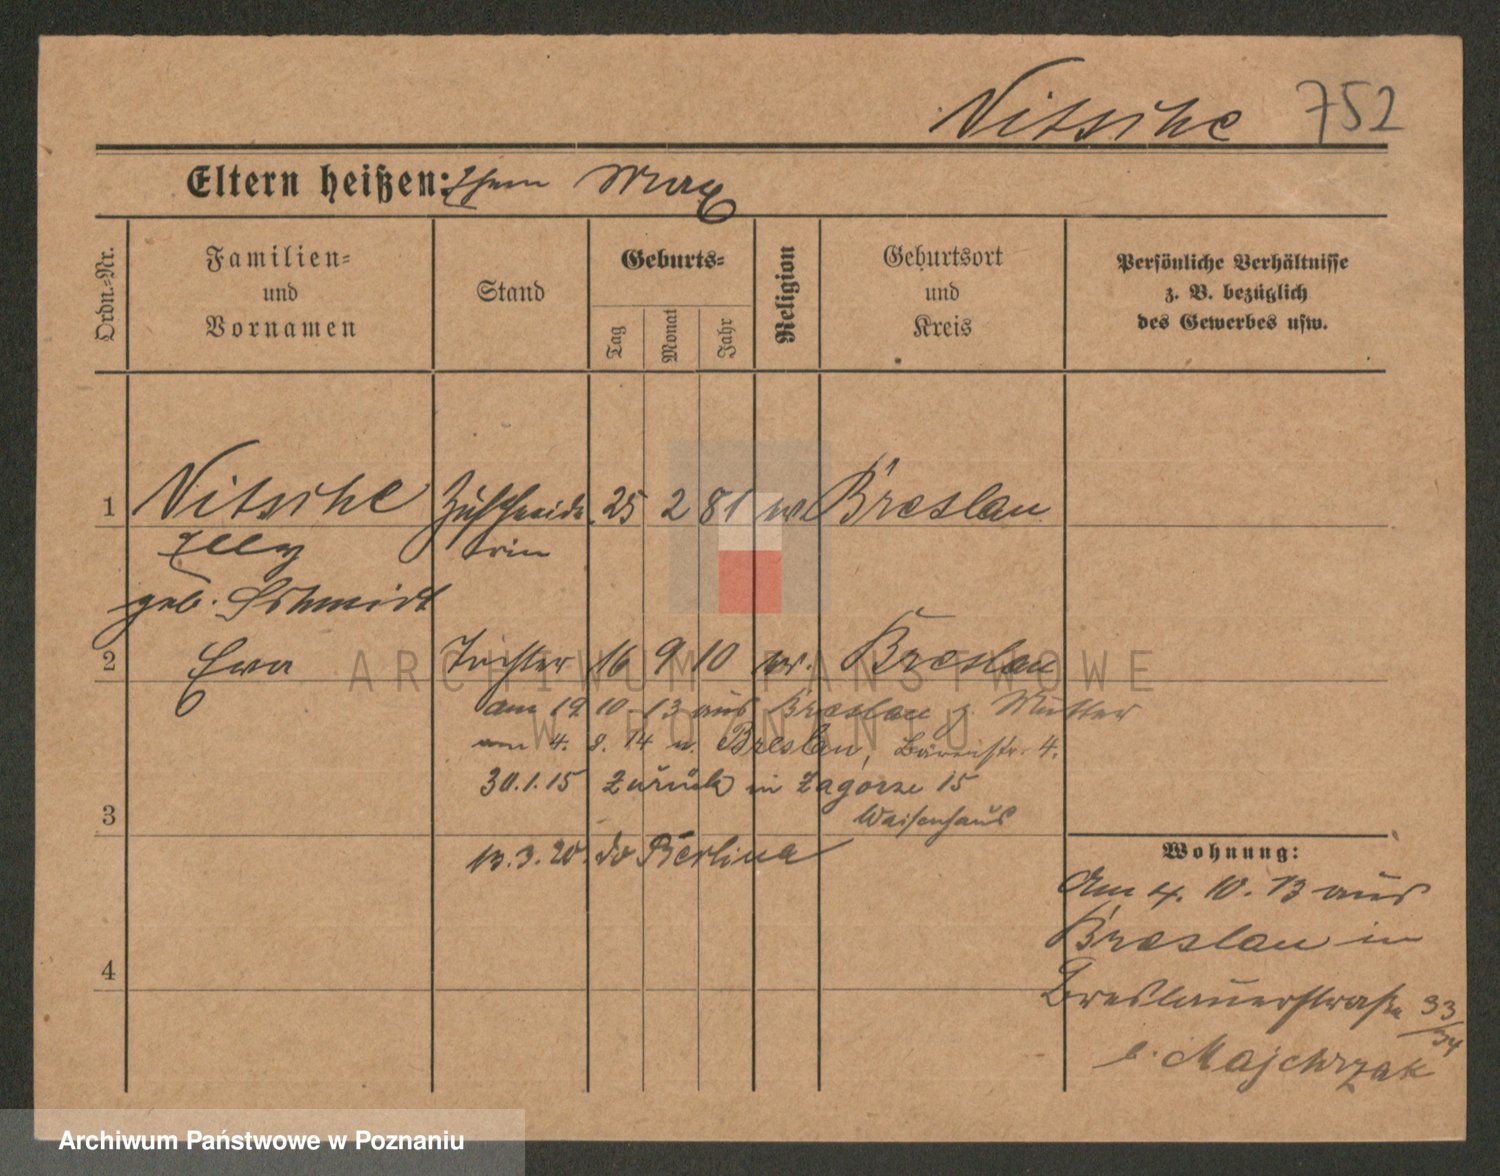 Nitsche 752
Eltern heißen: Max
Ordn.-Nr.
Familien-
und
Vornamen
Stand
Geburts-
Tag
Monat
Jahr
Religion
Geburtsort
und
Kreis
Persönliche Verhältnisse
z. B. bezüglich
des Gewerbes usw.
1 Nitsche Zuschneide 25 2 81 Breslau
Elly rin
geb. Schmidt
2 Ewa Tochter 16 9 10 Breslau
am 19 10 13 aus Breslau z. Mutter
am 4. 8. 14 n. Breslau, Bärenstr. 4.
30.1.15 zurück in Zagorze 15
3 Waisenhaus
13.3.20. do Berlina
Wohnung:
Am 4. 10. 13 aus
Breslau in
4 Breslauerstraße 33/34
b. Majchrzak
ARCHIWUM PAŃSTWOWE
W POZNANIU
Archiwum Państwowe w Poznaniu